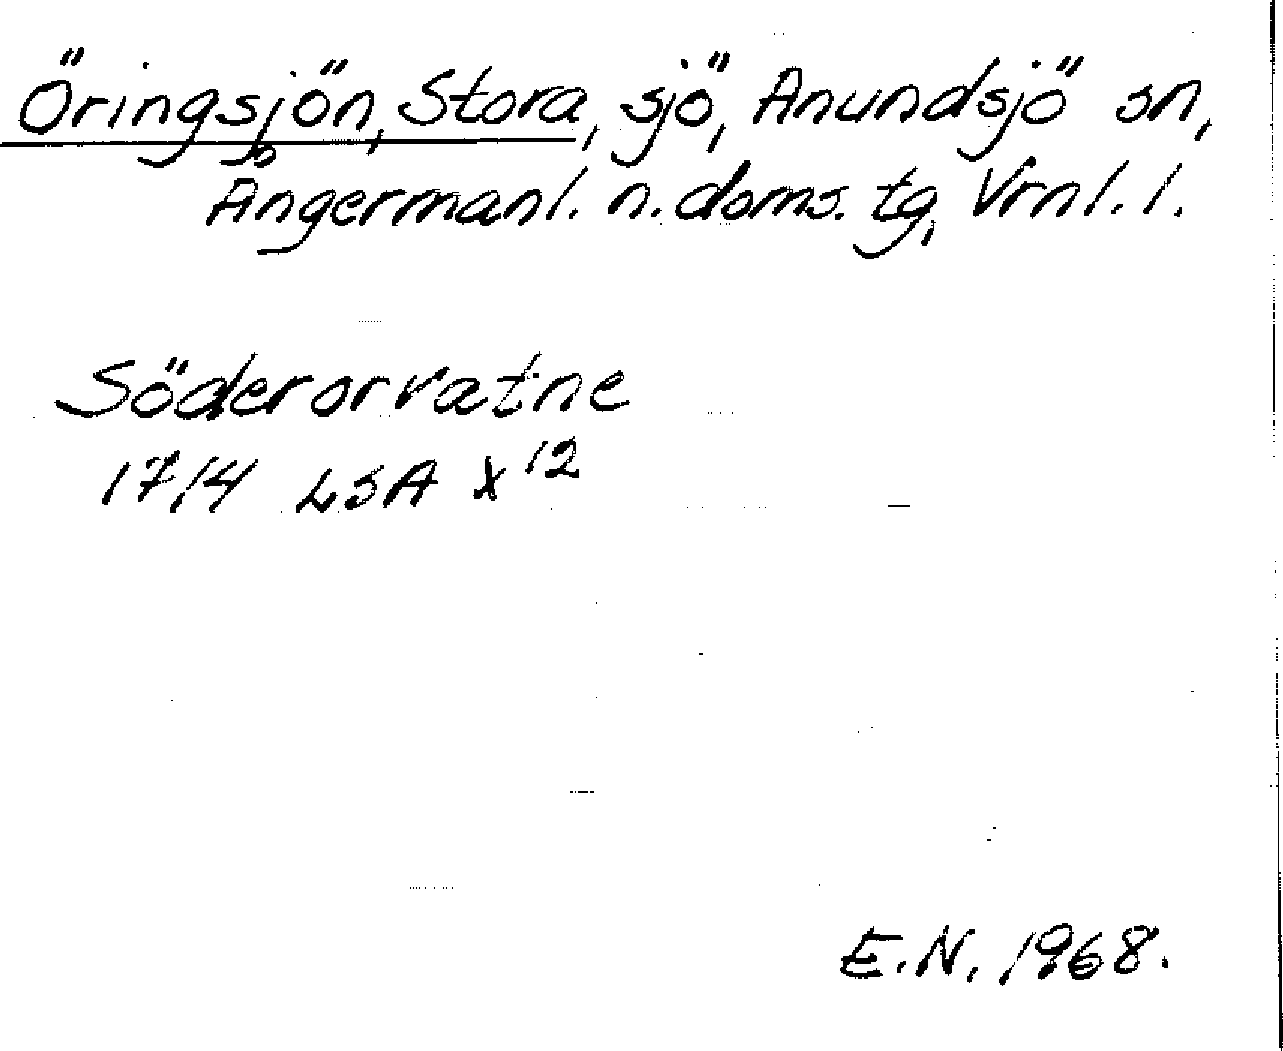 Öringsjön, Stora, sjö, Anundsjö sn,
Ångermanl. n. doms. tg, Vrnl. l.
Söderorvatne
1714 LSA X 12
E.N. 1968.